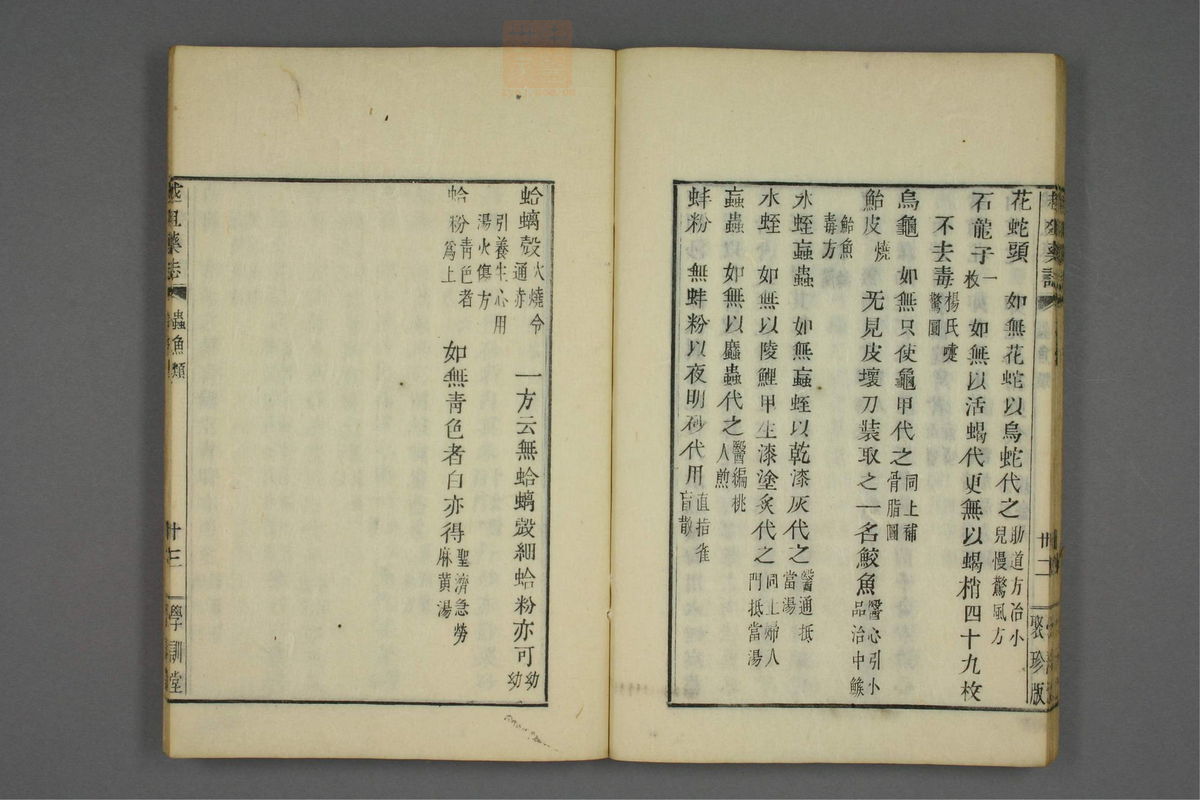 廿二
珍版
花蛇頭 如無花蛇以烏蛇代之 助道方治小兒慢驚風方
石龍子 一枚 如無以活蝎代更無以蝎梢四十九枚
不去毒 楊氏嚏驚圓
烏龜 如無只使龜甲代之 同上補骨脂圓
鮐皮 燒 无見皮壞刀裝取之一名鮫魚 醫心引小品治中鯸
鮐魚毒方
水蛭蝱蟲 如無蝱蛭以乾漆灰代之 醫通抵當湯
水蛭 如無以陵鯉甲生漆塗炙代之 同上婦人門抵當湯
蝱蟲 如無以䗪蟲代之 醫編桃人煎
蚌粉 無蚌粉以夜明砂代用 直指雀盲散
蛤蠣殼 火燒令通赤 一方云無蛤蠣殼細蛤粉亦可 幼幼
引養生心用湯火傷方
蛤粉 青色者爲上 如無青色者白亦得 聖濟急勞麻黃湯
藥志
蟲魚類
廿三
學訓堂